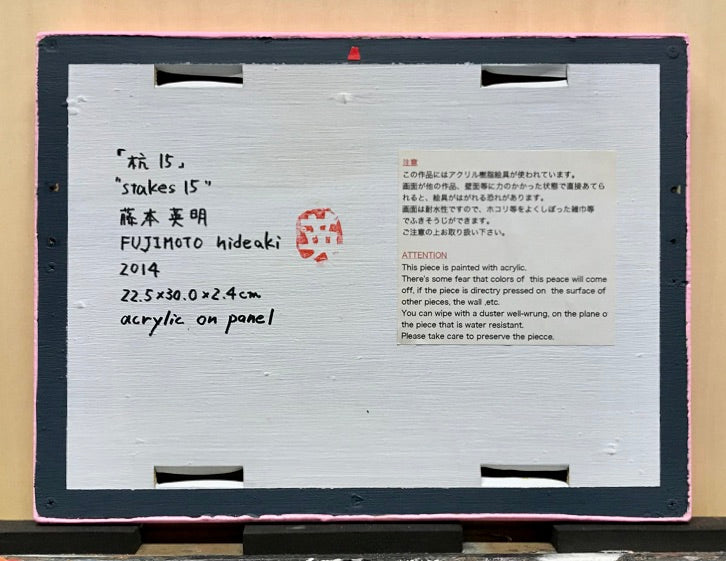 「杭 15」
"stakes 15"
藤本 英明
FUJIMOTO hideaki
2014
22.5×30.0×2.4cm
acrylic on panel
注意
この作品にはアクリル樹脂絵具が使われています。
画面が他の作品、壁面等に力のかかった状態で直接あてら
れると、絵具がはがれる恐れがあります。
画面は耐水性ですので、ホコリ等をよくしぼった雑巾等
でふきそうじができます。
ご注意の上お取り扱い下さい。
ATTENTION
This piece is painted with acrylic.
There's some fear that colors of this peace will come
off, if the piece is directry pressed on the surface of
other pieces, the wall ,etc.
You can wipe with a duster well-wrung, on the plane o
the piece that is water resistant.
Please take care to preserve the piecce.